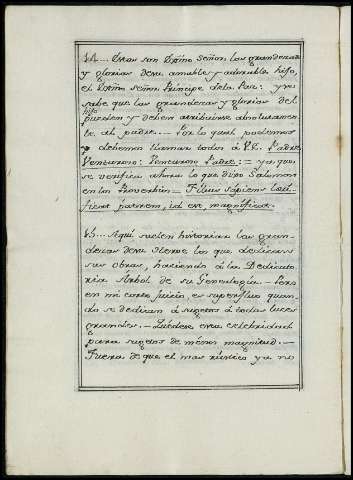 14... Estas son Ssmo Señor las grandezas
y glorias de su amable y adorable hijo,
el Ssmo señor Principe de la Paz: y se
sabe que las grandezas y glorias del
hijo
pueden y deben atribuirse absolutamen-
te al padre... Por lo qual podemos
y debemos llamar todos á V.E. Padre
Venturoso: Venturoso Padre: = ya que
se verifica ahora lo que dijo Salomon
en los Proverbios = Filius sapiens læti-
ficat patrem, id est, magnificat.
15... Aquí suelen historiar las gran-
dezas de su Mecenas los que dedican
sus obras, haciendo á la Dedicato-
ria Arbol de su Genealogia. - Pero
en mi corto juicio es superfluo quan-
do se dedican á sugetos á todas luces
grandes. - Quédese esa celebridad
para sugetos de ménos magnitud. -
Fuera de que el mas rústico ya no